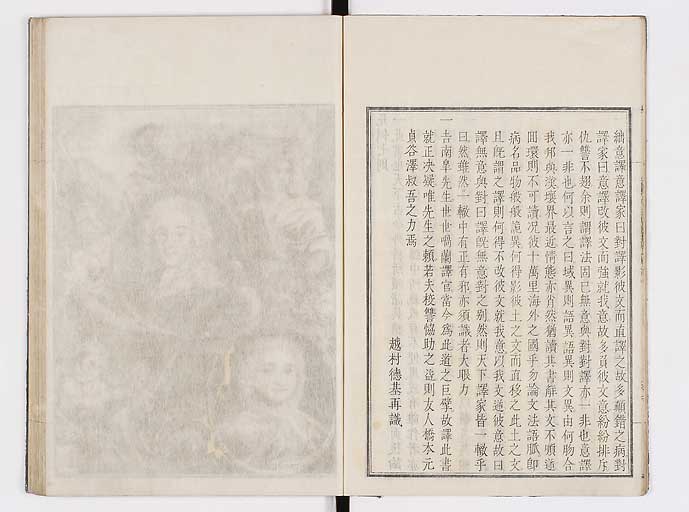 拙意譯意譯家曰對譯影彼文而直譯之故多顛錯之病對
譯家曰意譯改彼文而強就我意故多負彼文意紛紛排斥
仇讐不翅余則謂譯法固已無意與對對譯亦一非也意譯
亦一非也何以言之曰域異則語異語異則文異由何吻合
我邦與漢壤界最近情態亦肖然猶讀其書辭其文不顛道
回環則不可讀况彼十萬里海外之國乎勿論文法語脈卽
病名品物般般詭異何得影彼土之文而直移之此土之文
且既謂之譯則何得不改彼文就我意以我文通彼意故曰
譯無意與對曰譯旣無意對之别然則天下譯家皆一轍乎
曰然雖然一轍中有正有邪亦須識者大眼力
一吉南皐先生世世嗎蘭譯官當今爲此道之巨擘故譯此書
就正决疑唯先生之賴若夫校讐恊助之遑則友人橋本元
貞谷澤叔吾之力焉
越村德基再識